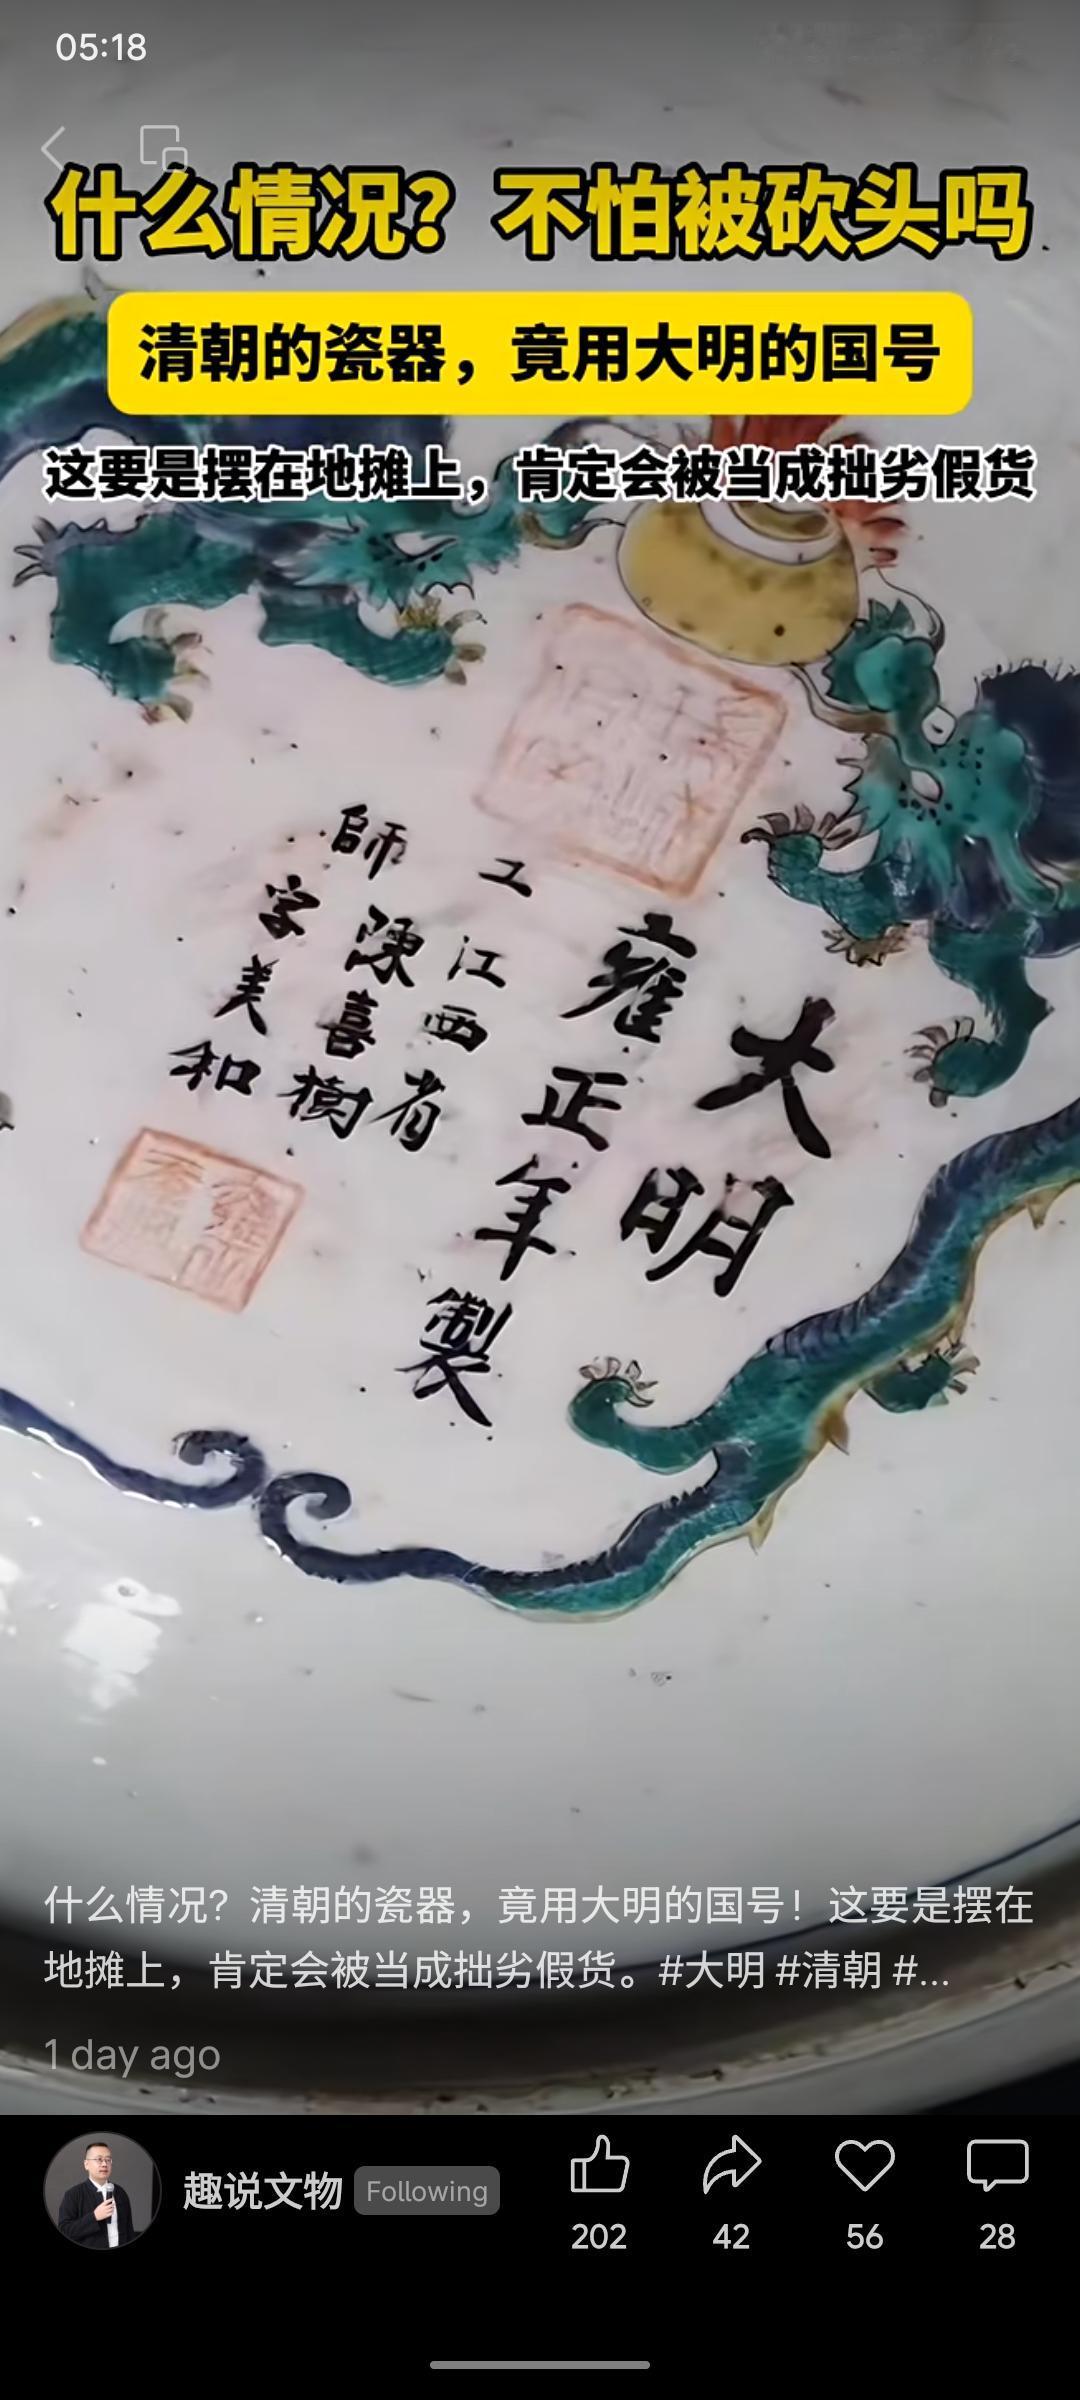 05:18
什么情况？不怕被砍头吗
清朝的瓷器，竟用大明的国号
这要是摆在地摊上，肯定会被当成拙劣假货
大明
雍正年製
工江西省
師陳喜樹
字美和
什么情况？清朝的瓷器，竟用大明的国号！这要是摆在
地摊上，肯定会被当成拙劣假货。#大明 #清朝 #...
1 day ago
趣说文物 Following
202 42 56 28